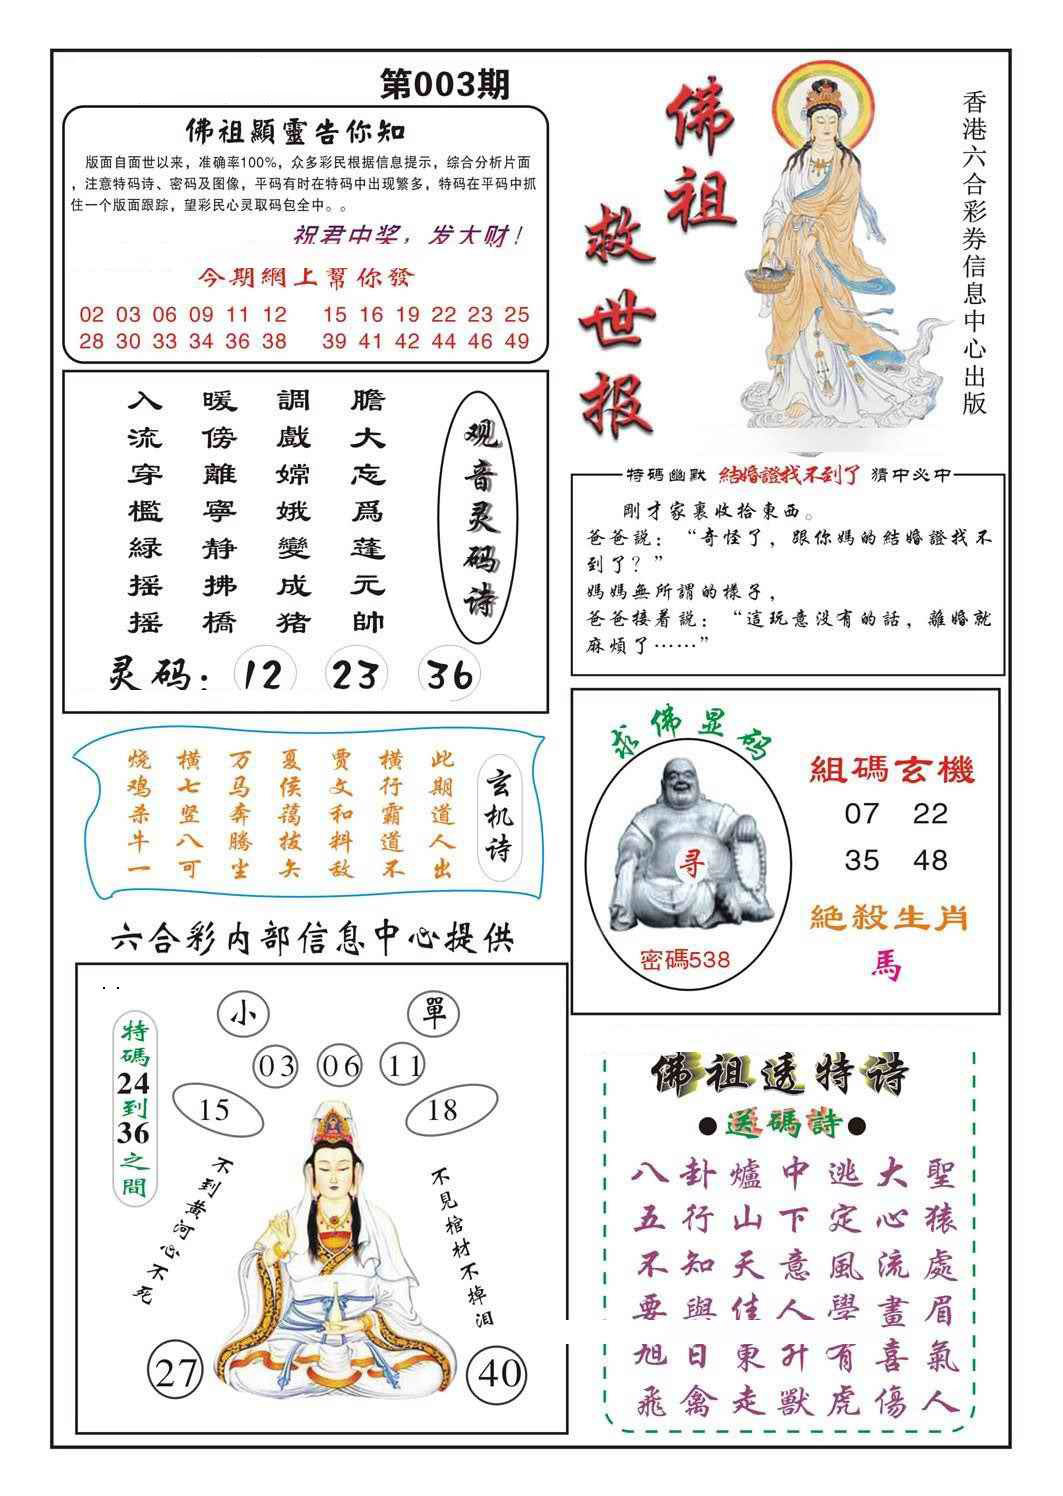 第003期
佛祖顯靈告你知
版面自面世以来，准确率100%，众多彩民根据信息提示，综合分析片面
，注意特码诗、密码及图像，平码有时在特码中出现繁多，特码在平码中抓
住一个版面跟踪，望彩民心灵取码包全中。。
祝君中奖，发大财！
今期網上幫你發
02 03 06 09 11 12 15 16 19 22 23 25
28 30 33 34 36 38 39 41 42 44 46 49
佛祖
救世报
香港六合彩券信息中心出版
观音灵码诗
膽大忘爲蓬元帥
調戲嫦娥變成猪
暖傍離寧静拂橋
入流穿檻緑摇摇
灵码：12 23 36
特碼幽默 結婚證找不到了 猜中必中
剛才家裏收拾東西。
爸爸説：“奇怪了，跟你媽的結婚證找不
到了？”
媽媽無所謂的樣子，
爸爸接着説：“這玩意没有的話，離婚就
麻煩了……”
玄机诗
此期道人出
横行霸道不
贾文和料敌
夏侯蔼拔矢
万马奔腾坐
横七竖八可
烧鸡杀牛一
求佛显码
寻
密碼538
組碼玄機
07 22
35 48
絕殺生肖
馬
六合彩内部信息中心提供
小 單
03 06 11
15 18
特碼24到36之間
不到黄河心不死
不見棺材不掉泪
27 40
佛祖透特诗
●送碼詩●
八卦爐中逃大聖
五行山下定心猿
不知天意風流處
要與佳人學畫眉
旭日東升有喜氣
飛禽走獸虎傷人